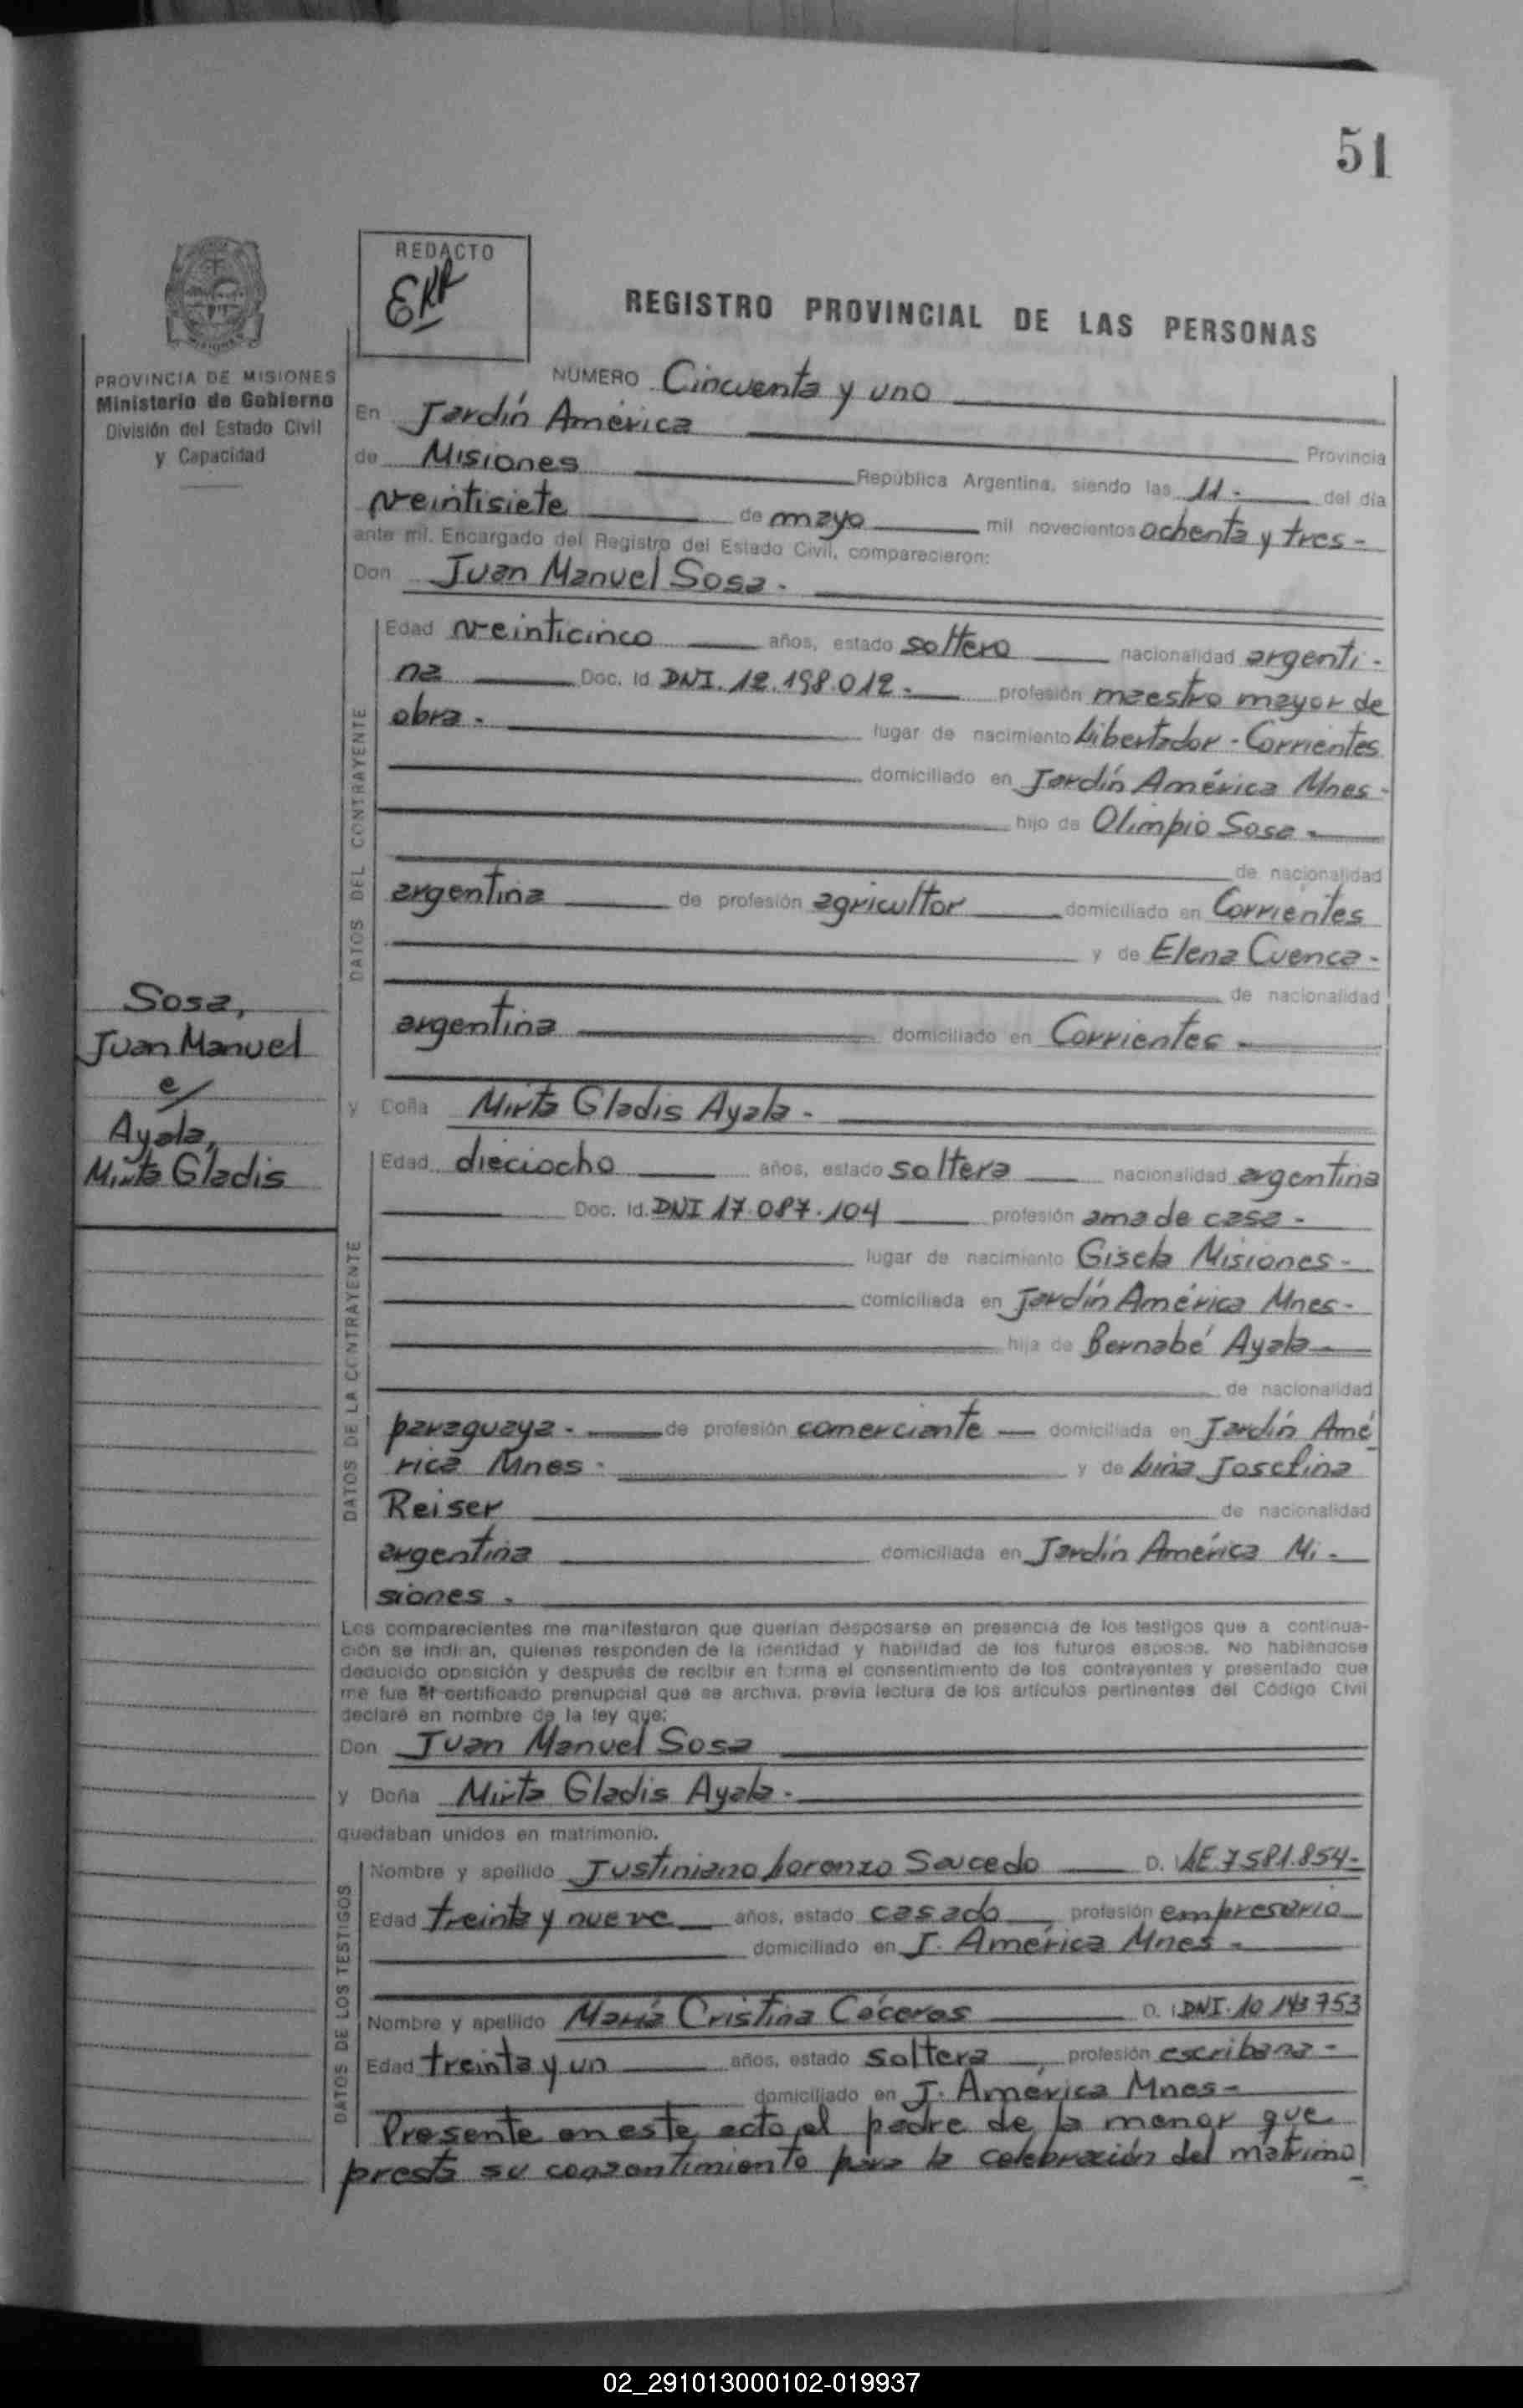 51
REDACTO
REGISTRO PROVINCIAL DE LAS PERSONAS
PROVINCIA DE MISIONES
Ministerio de Gobierno
División del Estado Civil
y Capacidad
NUMERO Cincuenta y uno
En Jardín América Provincia
de Misiones República Argentina, siendo las 11.- del día
veintisiete de mayo mil novecientos ochenta y tres-
ante mí. Encargado del Registro del Estado Civil, comparecieron:
Don Juan Manuel Sosa.
DATOS DEL CONTRAYENTE
Edad veinticinco años, estado soltero nacionalidad argenti-
na Doc. Id DNI. 12.198.012.- profesión maestro mayor de
obra.- lugar de nacimiento Libertador - Corrientes
domiciliado en Jardín América Mnes-
hijo de Olimpio Sosa-
de nacionalidad
argentina de profesión agricultor domiciliado en Corrientes
y de Elena Cuenca-
de nacionalidad
argentina domiciliado en Corrientes-
Sosa,
Juan Manuel
c/
Ayala,
Mirta Gladis
y Doña Mirta Gladis Ayala.
DATOS DE LA CONTRAYENTE
Edad dieciocho años, estado soltera nacionalidad argentina
Doc. Id. DNI 17.087.104 profesión ama de casa-
lugar de nacimiento Gisela Misiones-
domiciliada en Jardín América Mnes-
hija de Bernabé Ayala
de nacionalidad
paraguaya- de profesión comerciante domiciliada en Jardín Amé
rica Mnes- y de Lina Josefina
Reiser de nacionalidad
argentina domiciliada en Jardín América Mi-
siones.
Los comparecientes me manifestaron que querían desposarse en presencia de los testigos que a continua-
ción se indican, quienes responden de la identidad y habilidad de los futuros esposos. No habiéndose
deducido oposición y después de recibir en forma el consentimiento de los contrayentes y presentado que
me fue el certificado prenupcial que se archiva, previa lectura de los artículos pertinentes del Código Civil
declaré en nombre de la ley que:
Don Juan Manuel Sosa
y Doña Mirta Gladis Ayala-
quedaban unidos en matrimonio.
DATOS DE LOS TESTIGOS
Nombre y apellido Justiniano Lorenzo Saucedo D. I. LE 7581.854-
Edad treinta y nueve años, estado casado profesión empresario
domiciliado en J. América Mnes-
Nombre y apellido María Cristina Cáceres D. I. DNI. 10 143 753
Edad treinta y un años, estado soltera profesión escribana-
domiciliado en J. América Mnes-
Presente en este acto el padre de la menor que
presta su consentimiento para la celebración del matrimo
-
02_291013000102-019937